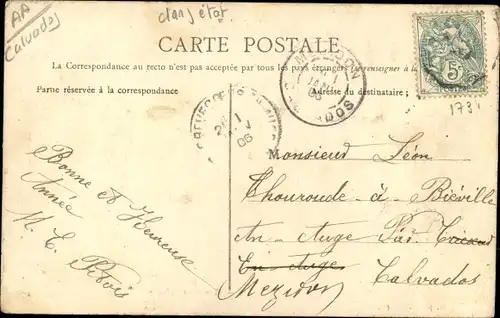 AA
Calvados
dans état
CARTE POSTALE
La Correspondance au recto n'est pas acceptée par tous les pays étrangers (se renseigner à la
Partie réservée à la correspondance
Adresse du destinataire ;
5c
173
1
06
Bonne et Heureuse
Année
M. C.
Monsieur Léon
Thouroude - à - Biéville
An - Auge Par
En Auge Calvados
Mezidon